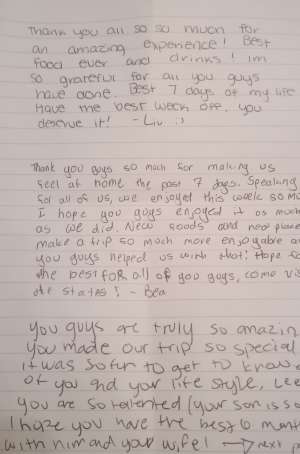 Thank you all so so much for
an amazing experience! Best
food ever and drinks! im
so grateful for all you guys
have done. Best 7 days of my life
Have the best week off, you
deserve it! - Liv :)
Thank you guys so much for making us
feel at home the past 7 days. Speaking
for all of us, we enjoyed this week so mu
I hope you guys enjoyed it as much
as we did. New foods and new place
make a trip so much more enjoyable a
you guys helped us with that! Hope fo
the best for all of you guys, come vis
the states! - Bea
you guys are truly so amazin
you made our trip so special
it was so fun to get to know
of you and your life style, Lee
you are so talented (your son is s
I hope you have the best 6 mont
with him and your wife! → next p